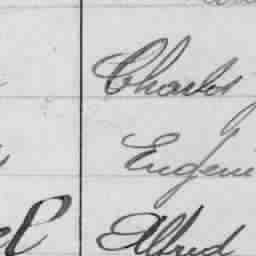 Charles
Eugene
Alfred